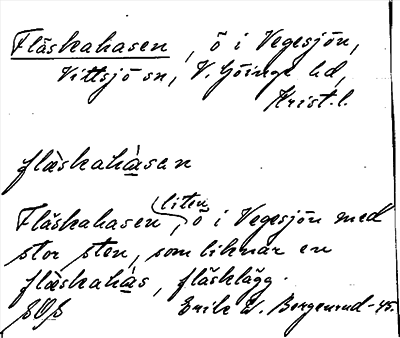 Fläskahasen, ö i Vegesjön,
Vittsjö sn, V. Göinge hd,
Krist. l.
flæskahàsen
Fläskahasen, liten ö i Vegesjön med
stor sten, som liknar en
flæskahàs, fläsklägg.
Erik W. Bergenrud -45.